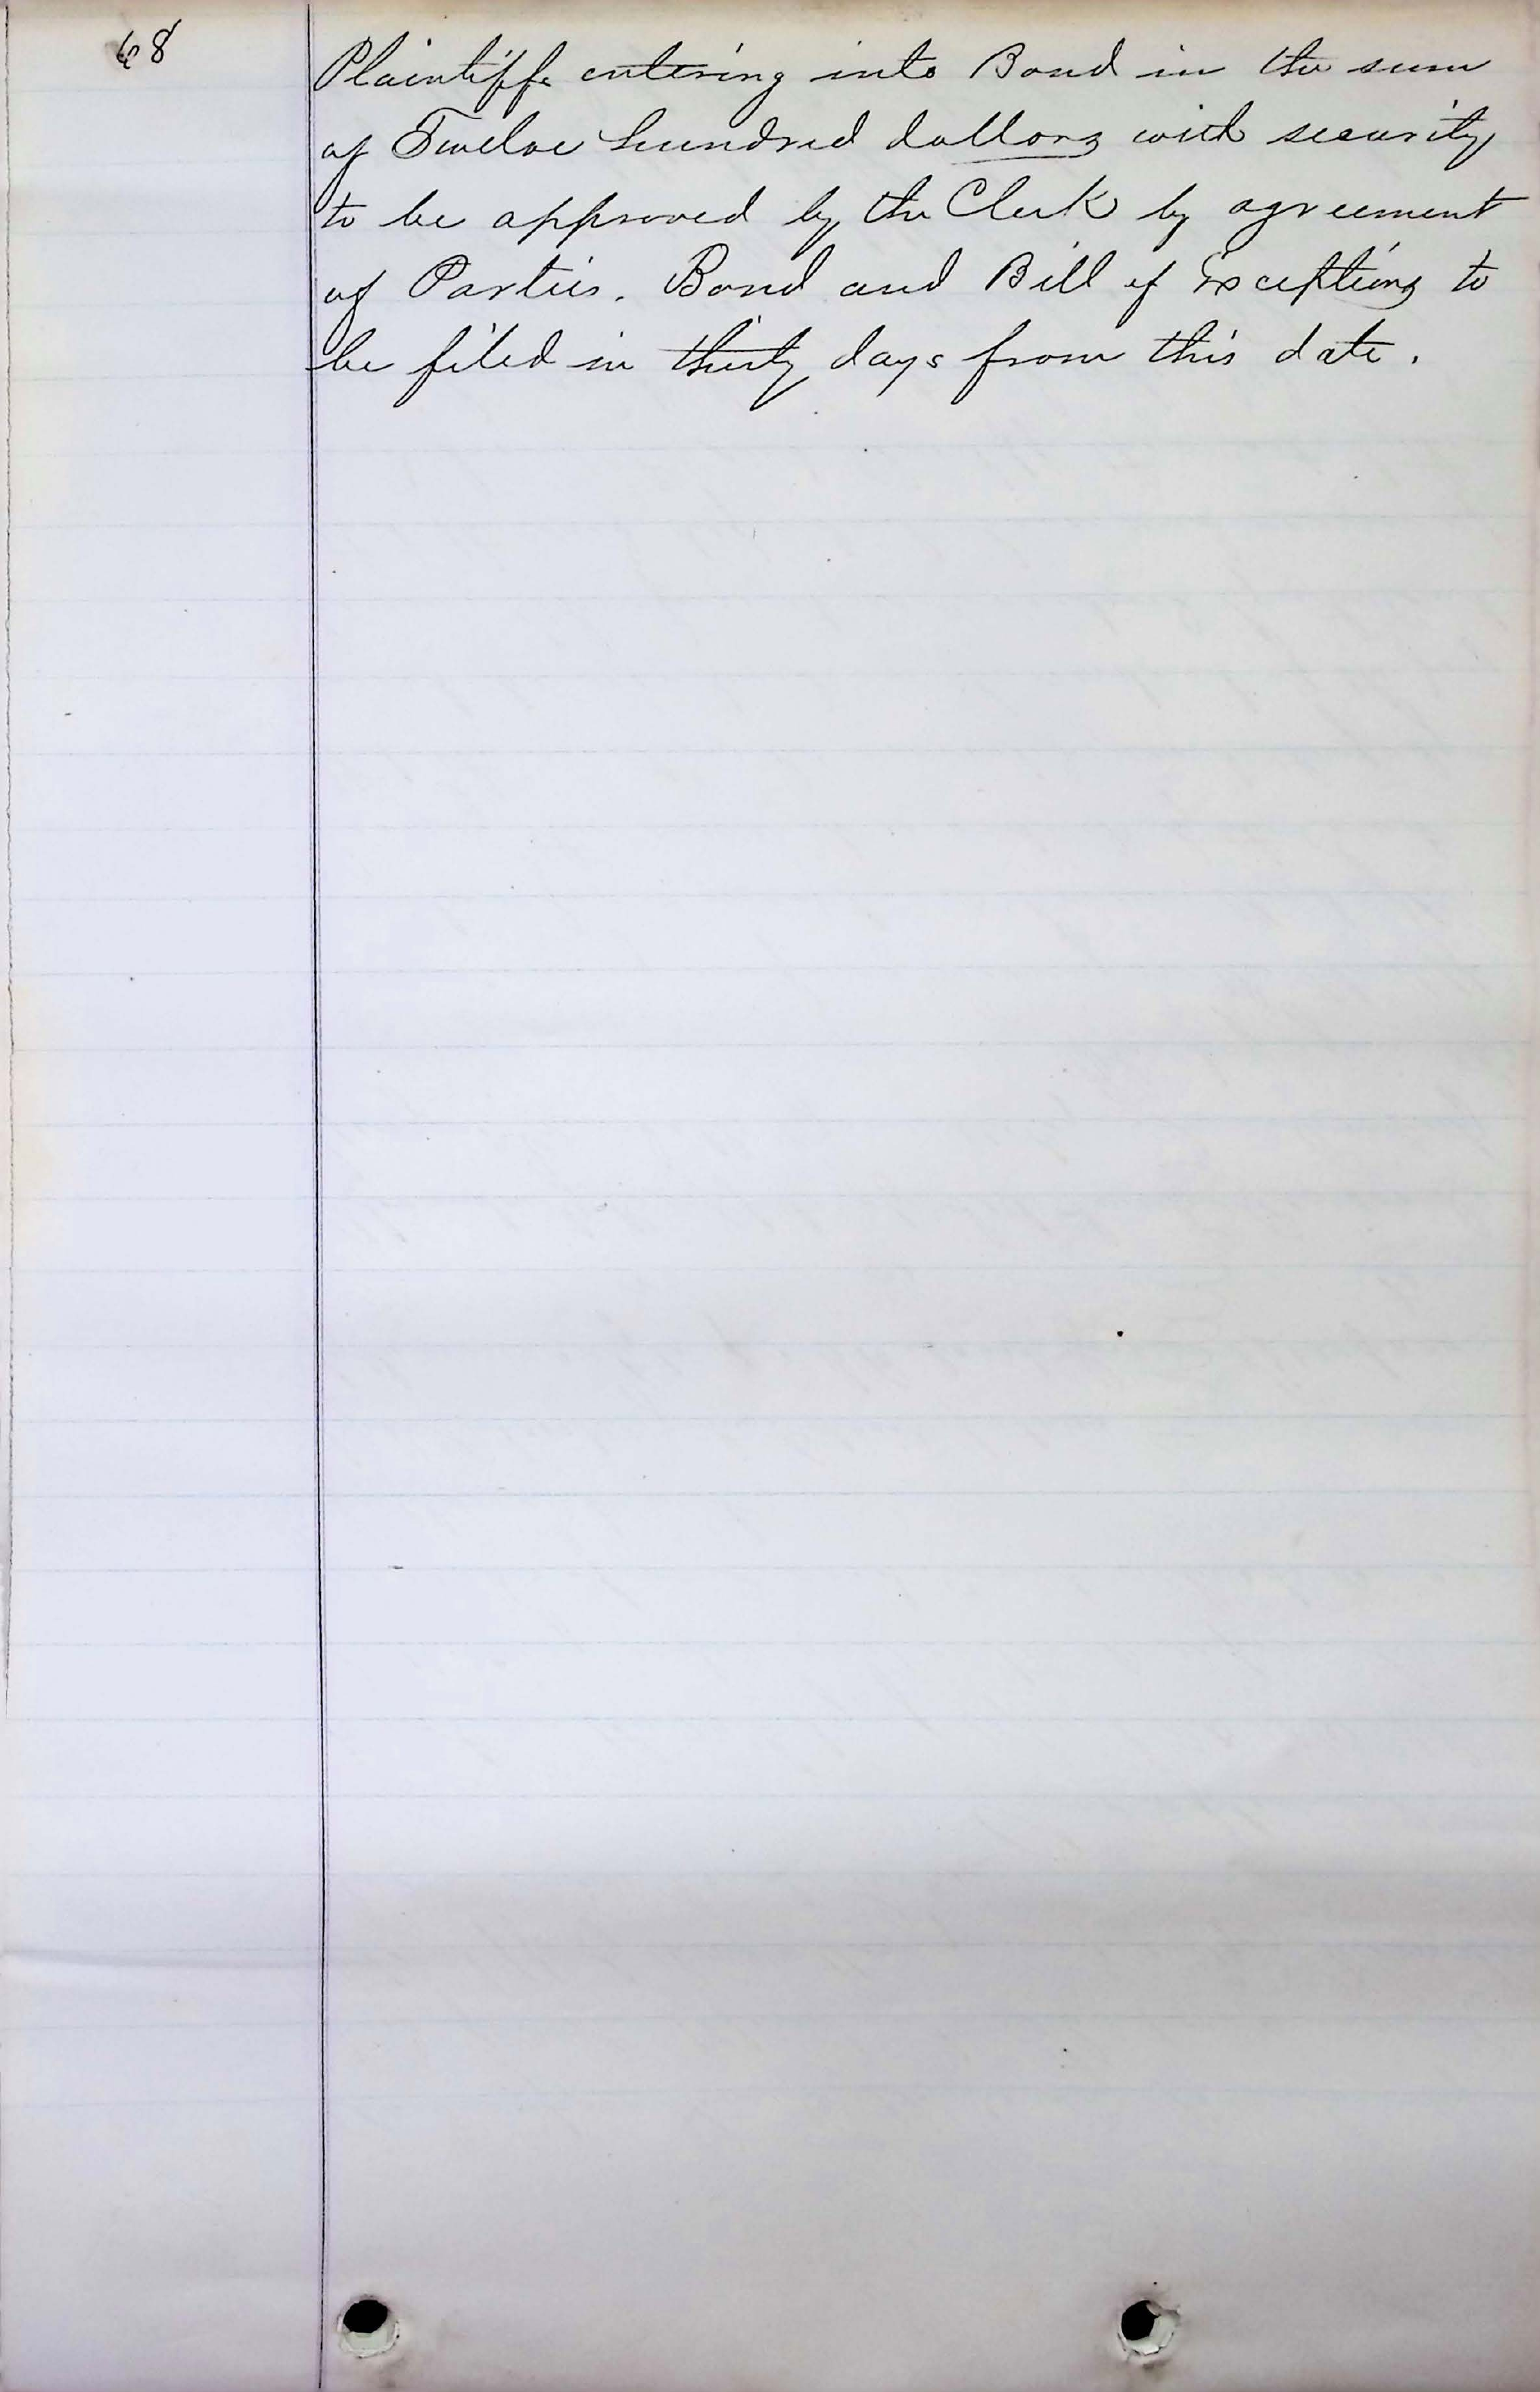 68
Plaintiffs entering into Bond in the sum
of Twelve hundred dollars with security
to be approved by the Clerk by agreement
of Parties. Bond and Bill of Exceptions to
be filed in thirty days from this date.